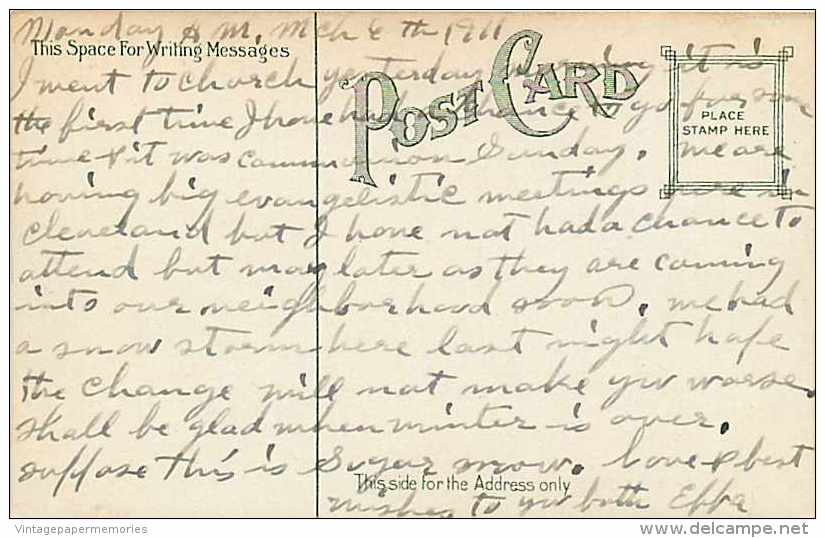 Monday A M, Mch 6th 1911
This Space For Writing Messages
POST CARD
PLACE
STAMP HERE
I went to church yesterday morning it is
the first time I have had a chance to go for some
time & it was communion Sunday. we are
having big evangelistic meetings here in
Cleveland but I have not had a chance to
attend but may later as they are coming
into our neighborhood soon. we had
a snow storm here last night hope
the change will not make you worse
shall be glad when winter is over.
suppose this is Sugar snow. love & best
This side for the Address only
wishes to you both Effa
Vintagepapermemories
delcampe.net